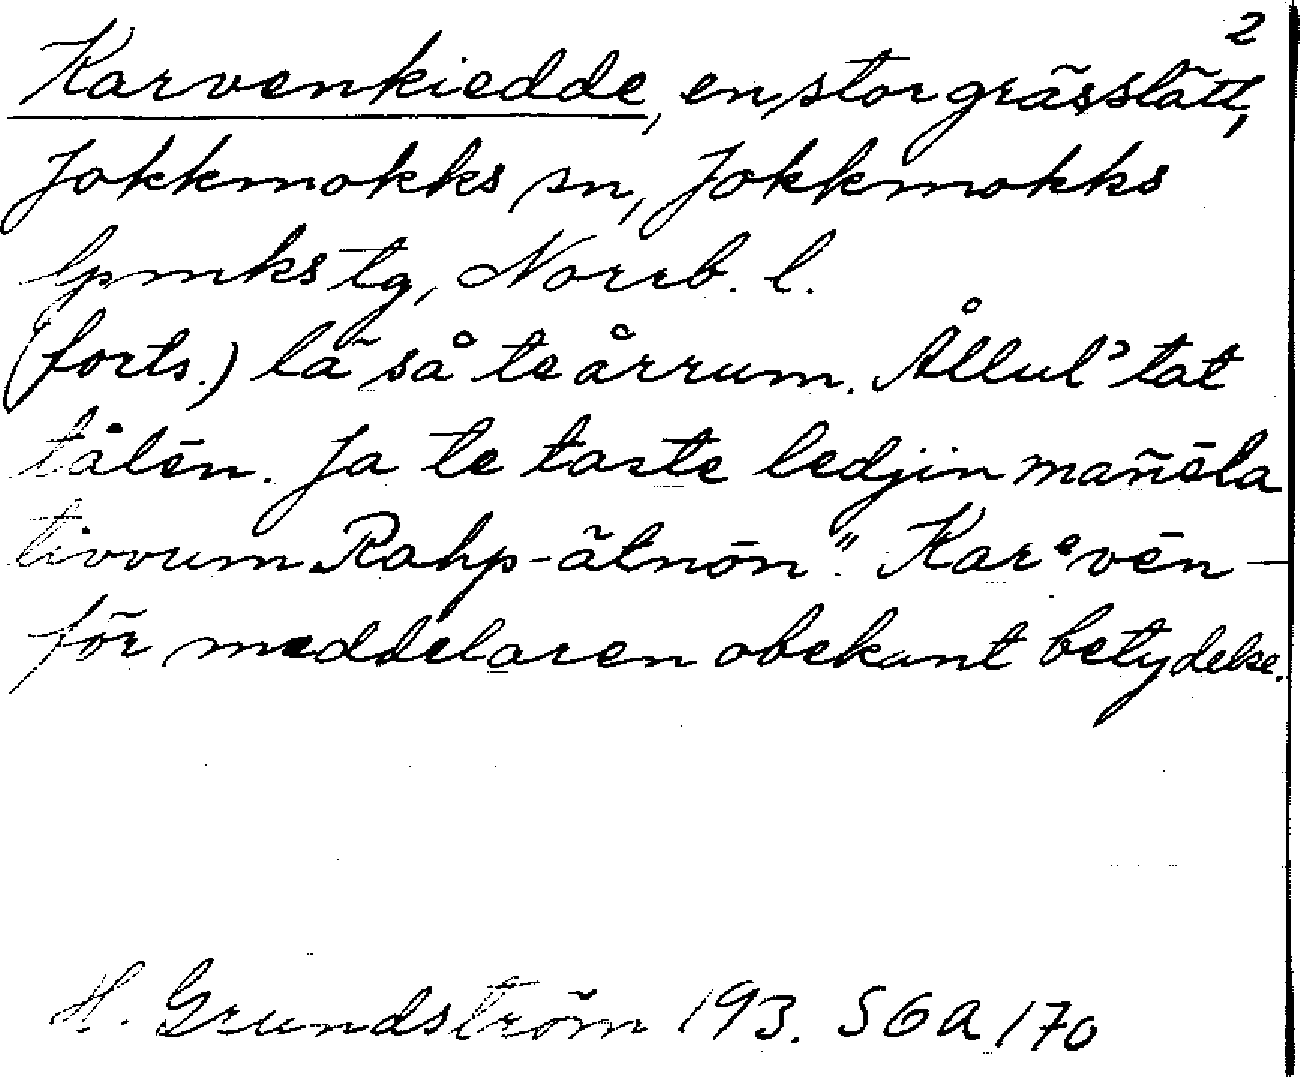 2
Karvenkiedde, en stor grässlätt,
Jokkmokks sn, Jokkmokks
lpmks tg, Norrb. l.
(forts.) lä så te årrum. Ållul' tat
tålēn. Ja te taste ledjin mañēla
tivvum Rahp-ätnōn". Karᵉvēn-
för meddelaren obekant betydelse.
H. Grundström 193. SGA 170